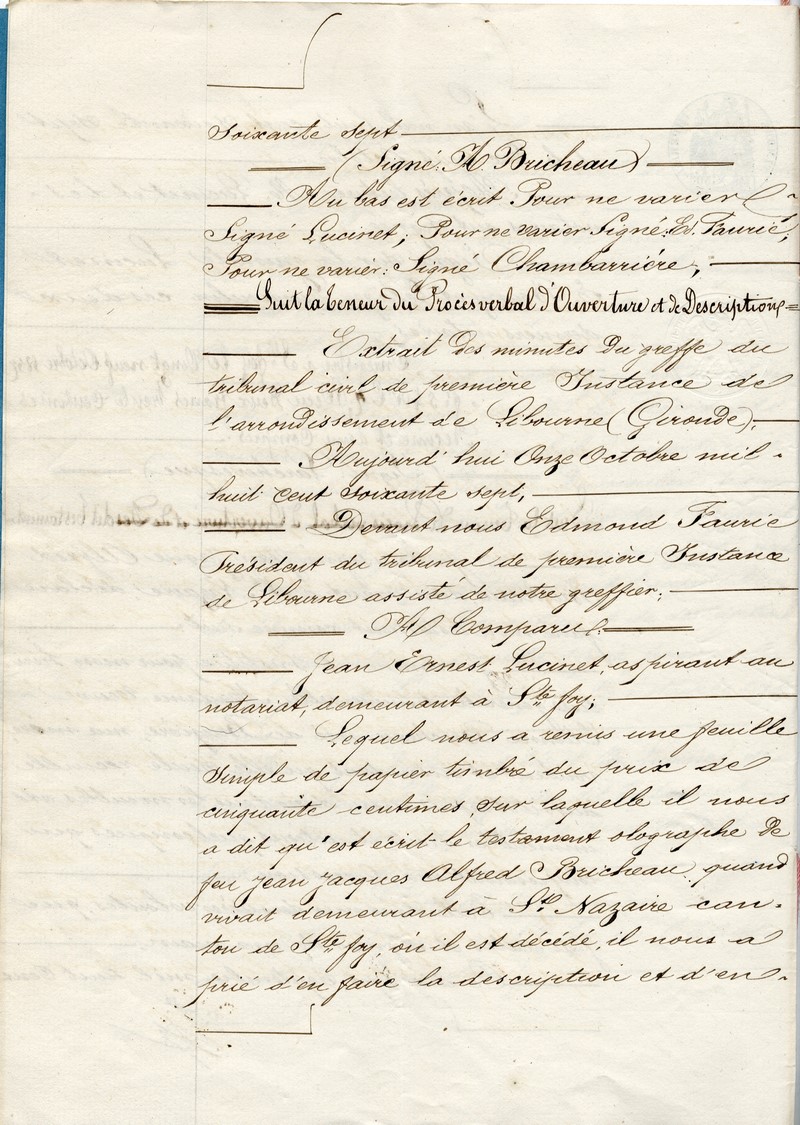 soixante sept
(Signé: A. Bricheau)
Au bas est écrit Pour ne varier
Signé Lucinet; Pour ne varier Signé: Ed. Faurie,
Pour ne varier: Signé Chambarrière,
Suit la teneur du Procès verbal d'Ouverture et de Description
Extrait des minutes du greffe du
tribunal civil de première Instance de
l'arrondissement de Libourne (Gironde).
Aujourd'hui Onze Octobre mil
huit cent soixante sept,
Devant nous Edmond Faurie
Président du tribunal de première Instance
de Libourne assisté de notre greffier;
A Comparu:
Jean Ernest Lucinet, aspirant au
notariat, demeurant à Ste foy;
Lequel nous a remis une feuille
simple de papier timbré du prix de
cinquante centimes, sur laquelle il nous
a dit qu'est écrit le testament olographe de
feu Jean Jacques Alfred Bricheau, quand
vivait demeurant à St Nazaire can-
ton de Ste foy, où il est décédé, il nous a
prié d'en faire la description et d'en